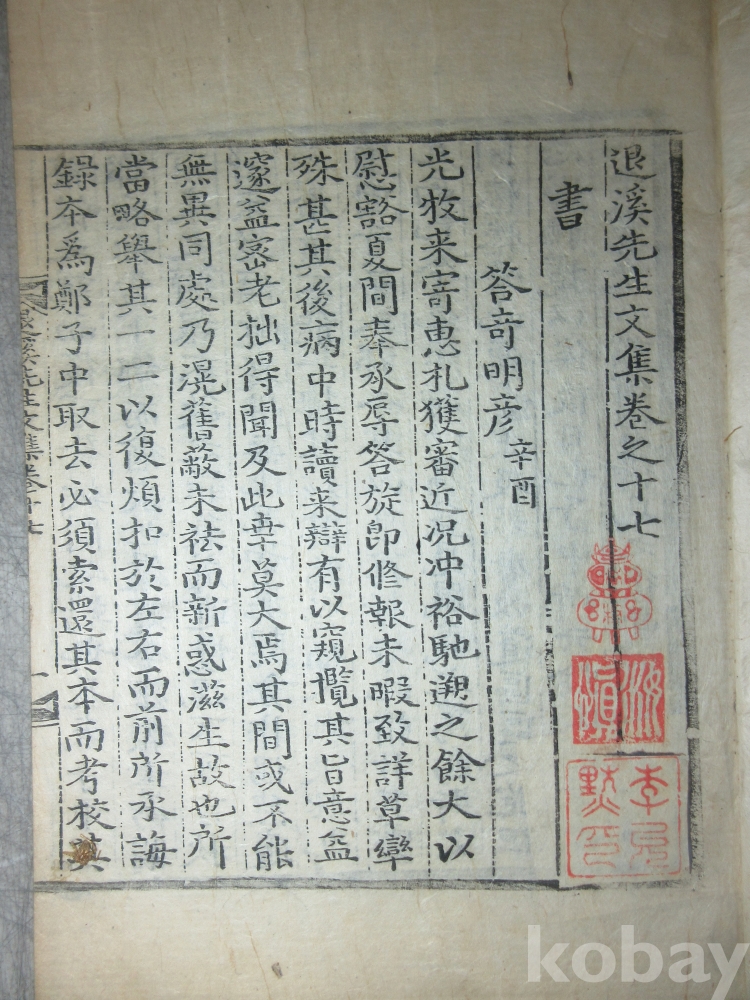 退溪先生文集卷之十七
書
答奇明彦 辛酉
光牧来寄惠札獲審近況冲裕馳遡之餘大以
慰豁夏間奉承辱答旋卽修報未暇致詳草率
殊甚其後病中時讀来辯有以窺攬其旨意益
邃益密老拙得聞及此幸莫大焉其間或不能
無異同處乃滉舊蔽未祛而新惑滋生故也所
當略舉其一二以復煩扣於左右而前所承誨
錄本爲鄭子中取去必須索還其本而考校其
退溪先生文集卷十七
kobay